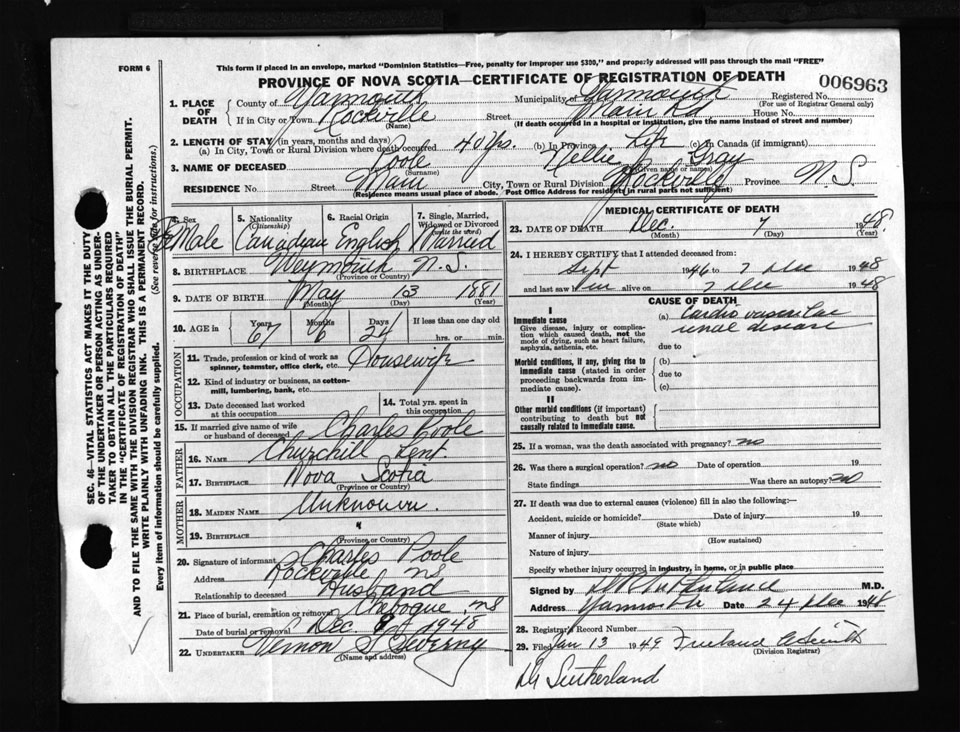 FORM 6
This form if placed in an envelope, marked "Dominion Statistics—Free, penalty for improper use $300," and properly addressed will pass through the mail "FREE"
PROVINCE OF NOVA SCOTIA—CERTIFICATE OF REGISTRATION OF DEATH
006963
1. PLACE OF DEATH
County of Yarmouth Municipality of Yarmouth Registered No.
(For use of Registrar General only)
If in City or Town Rockville Street Main Rd. House No.
(Name) (If death occurred in a hospital or institution, give the name instead of street and number)
2. LENGTH OF STAY (in years, months and days)
(a) In City, Town or Rural Division where death occurred 40 yrs. (b) In Province Life (c) In Canada (if immigrant)
3. NAME OF DECEASED Poole Nellie Gray
(Surname) (Given name or names)
RESIDENCE No. Street Main City, Town or Rural Division Rockville Province N S.
(Residence means usual place of abode. Post Office Address for residents in rural parts not sufficient)
4. Sex 5. Nationality (Citizenship) 6. Racial Origin 7. Single, Married, Widowed or Divorced (write the word)
FeMale Canadian English Married
8. BIRTHPLACE Weymouth N. S.
(Province or Country)
9. DATE OF BIRTH May 13 1881
(Month) (Day) (Year)
10. AGE in Years Months Days If less than one day old
67 6 24 hrs. or min.
OCCUPATION
11. Trade, profession or kind of work as spinner, teamster, office clerk, etc. Housewife
12. Kind of industry or business, as cotton-mill, lumbering, bank, etc.
13. Date deceased last worked at this occupation
14. Total yrs. spent in this occupation
15. If married give name of wife or husband of deceased Charles Poole
FATHER
16. NAME Churchill Kent.
17. BIRTHPLACE Nova Scotia
(Province or Country)
MOTHER
18. MAIDEN NAME Unknown.
19. BIRTHPLACE "
(Province or Country)
20. Signature of informant Charles Poole
Address Rockville NS
Relationship to deceased Husband
21. Place of burial, cremation or removal Chebogue, NS
Date of burial or removal Dec. 9 1948
22. UNDERTAKER Vernon S Sweeny
(Name and address)
MEDICAL CERTIFICATE OF DEATH
23. DATE OF DEATH Dec. 7 1948
(Month) (Day) (Year)
24. I HEREBY CERTIFY that I attended deceased from:
Sept 1946 to 7 Dec 1948
and last saw alive on 7 Dec 1948
CAUSE OF DEATH
I
Immediate cause
Give disease, injury or complication which caused death, not the mode of dying, such as heart failure, asphyxia, asthenia, etc.
(a) Cardio vascular
renal disease
due to
Morbid conditions, if any, giving rise to immediate cause (stated in order proceeding backwards from immediate cause).
(b)
due to
(c)
II
Other morbid conditions (if important) contributing to death but not causally related to immediate cause.
25. If a woman, was the death associated with pregnancy? no
26. Was there a surgical operation? no Date of operation 19
State findings Was there an autopsy? no
27. If death was due to external causes (violence) fill in also the following:—
Accident, suicide or homicide? Date of injury 19
(State which)
Manner of injury
(How sustained)
Nature of injury
Specify whether injury occurred in industry, in home, or in public place
Signed by M.D.
Address Yarmouth Date 24 Dec 1948
28. Registrar's Record Number
29. Filed Jan 13 1949 Smith
(Division Registrar)
Dr Sutherland
SEC. 46—VITAL STATISTICS ACT MAKES IT THE DUTY
OF THE UNDERTAKER OR PERSON ACTING AS UNDER-
TAKER TO OBTAIN ALL THE PARTICULARS REQUIRED
IN THE "CERTIFICATE OF REGISTRATION OF DEATH"
AND TO FILE THE SAME WITH THE DIVISION REGISTRAR WHO SHALL ISSUE THE BURIAL PERMIT.
WRITE PLAINLY WITH UNFADING INK. THIS IS A PERMANENT RECORD.
Every item of information should be carefully supplied. (See reverse side for instructions.)